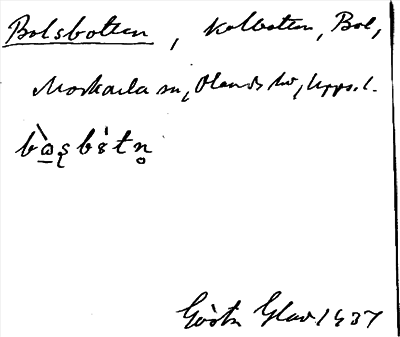 Bolsbotten, kolbotten, Bol,
Morkarla sn, Olands hd, Upps. l.
Gösta Glav 1937